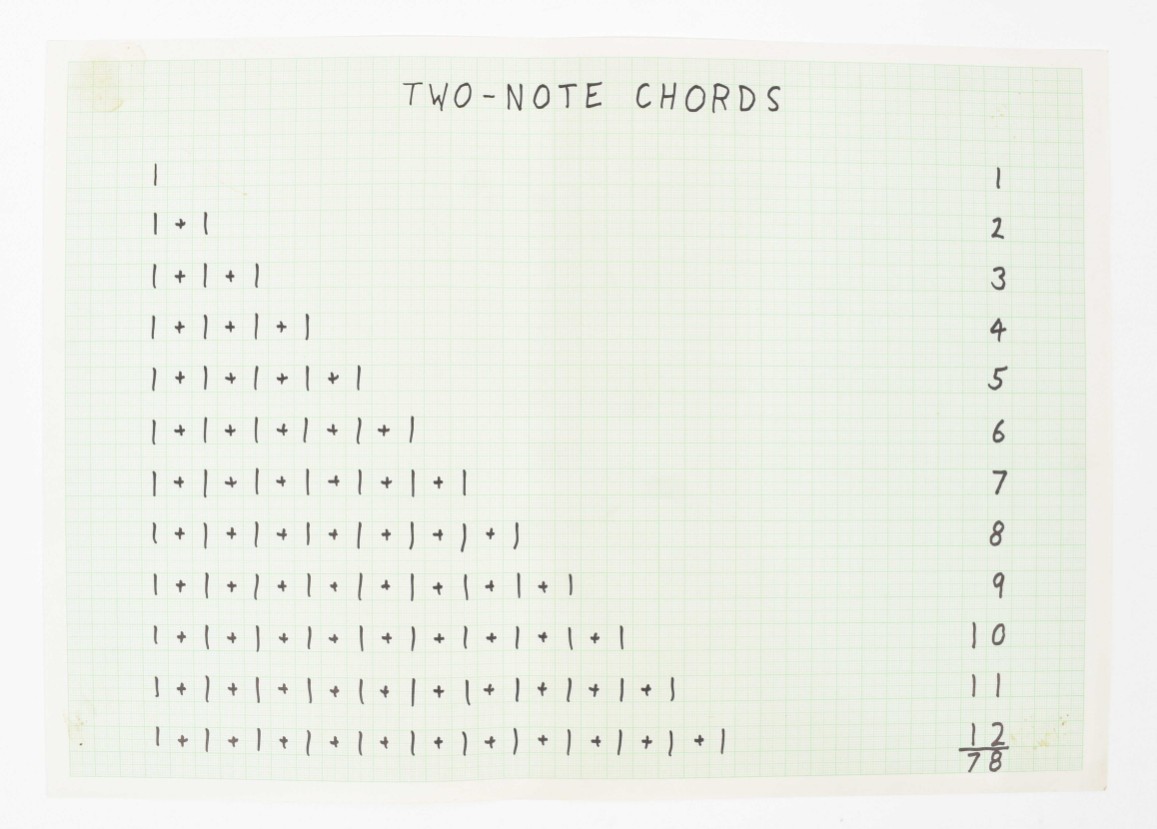 TWO-NOTE CHORDS
1 1
1 + 1 2
1 + 1 + 1 3
1 + 1 + 1 + 1 4
1 + 1 + 1 + 1 + 1 5
1 + 1 + 1 + 1 + 1 + 1 6
1 + 1 + 1 + 1 + 1 + 1 + 1 7
1 + 1 + 1 + 1 + 1 + 1 + 1 + 1 8
1 + 1 + 1 + 1 + 1 + 1 + 1 + 1 + 1 9
1 + 1 + 1 + 1 + 1 + 1 + 1 + 1 + 1 + 1 10
1 + 1 + 1 + 1 + 1 + 1 + 1 + 1 + 1 + 1 + 1 11
1 + 1 + 1 + 1 + 1 + 1 + 1 + 1 + 1 + 1 + 1 + 1 12
78